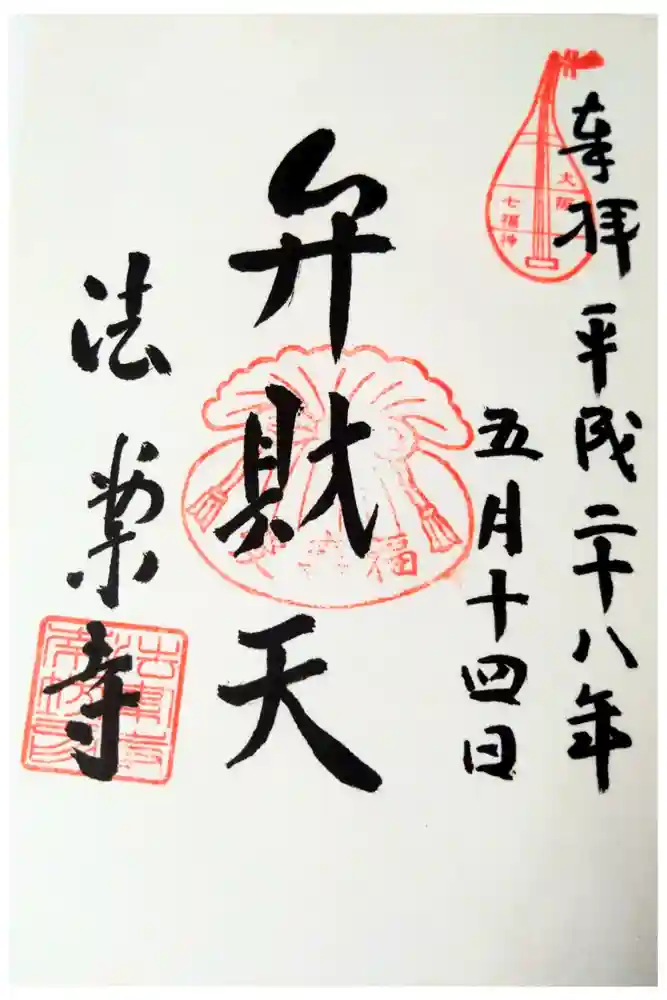 奉拝
平成二十八年
五月十四日
大阪
七福神
弁財天
福
法楽寺